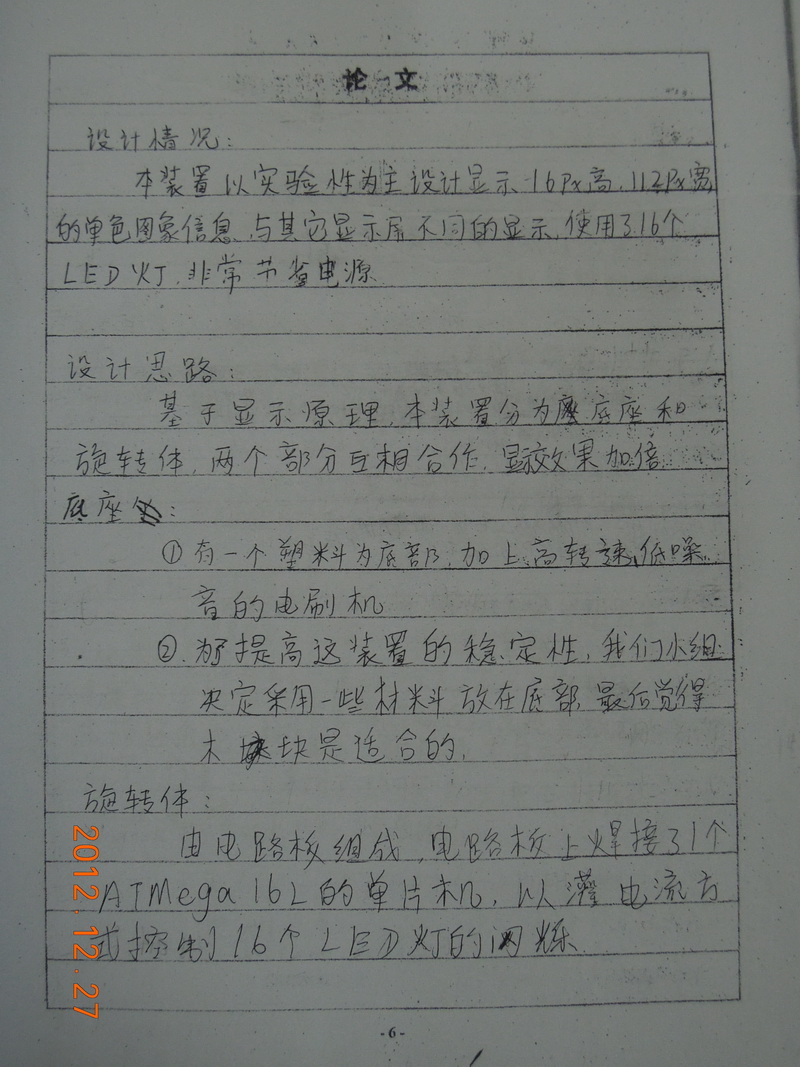 论 文
设计情况:
本装置以实验性为主设计显示16Px高,112Px宽
的单色图象信息,与其它显示屏不同的显示,使用了16个
LED灯,非常节省电源
设计思路:
基于显示原理,本装置分为底座和
旋转体,两个部分互相合作,显效果加倍
底座:
①有一个塑料为底部,加上高转速,低噪
音的电刷机
②.为了提高这装置的稳定性,我们小组
决定采用一些材料放在底部,最后觉得
木块是适合的,
旋转体:
由电路板组成,电路板上焊接了1个
ATMega 16L的单片机,以灌电流方
式控制16个LED灯的闪烁.
2012.12.27
- 6 -